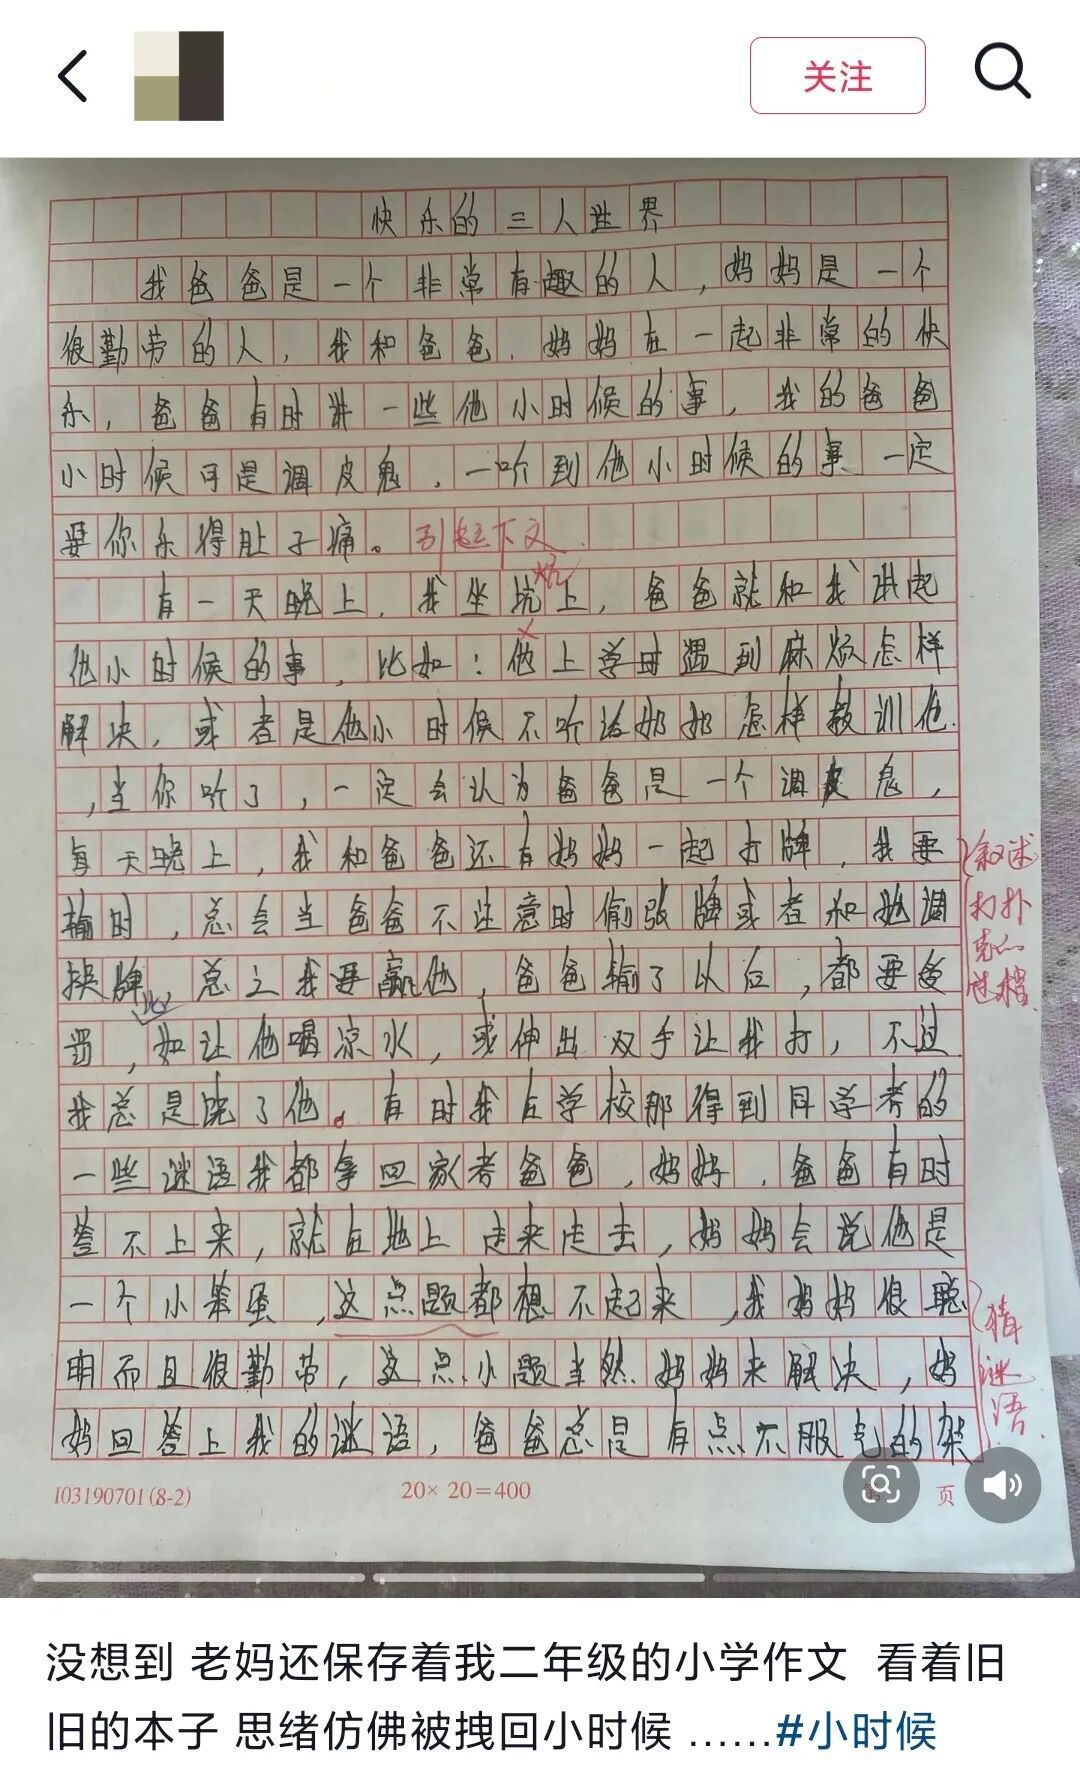 关注
快乐的三人世界
我爸爸是一个非常有趣的人，妈妈是一个
很勤劳的人，我和爸爸、妈妈在一起非常的快
乐，爸爸有时讲一些他小时候的事，我的爸爸
小时候可是调皮鬼，一听到他小时候的事、一定
要你乐得肚子痛。引起下文
炕
有一天晚上，我坐坑上，爸爸就和我讲起
他小时候的事，比如：他上学时遇到麻烦怎样
解决，或者是他小时候不听话奶奶怎样教训他
，当你听了，一定会认为爸爸是一个调皮鬼，
每天晚上，我和爸爸还有妈妈一起打牌，我要
输时，总会当爸爸不注意时偷张牌或者和她调
换牌，总之我要赢他，爸爸输了以后，都要受
罚，如让他喝凉水，或伸出双手让我打，不过
比
我总是饶了他。有时我在学校那得到同学考的
一些谜语我都拿回家考爸爸，妈妈，爸爸有时
答不上来，就在地上走来走去，妈妈会说他是
一个小笨蛋，这点题都想不起来，我妈妈很聪
明而且很勤劳，这点小题当然妈妈来解决，妈
妈回答上我的谜语，爸爸总是有点不服气的
叙述
打扑
克的
过程
猜
谜
语
I03190701(8-2)
20×20=400
页
没想到 老妈还保存着我二年级的小学作文 看着旧
旧的本子 思绪仿佛被拽回小时候 ......#小时候